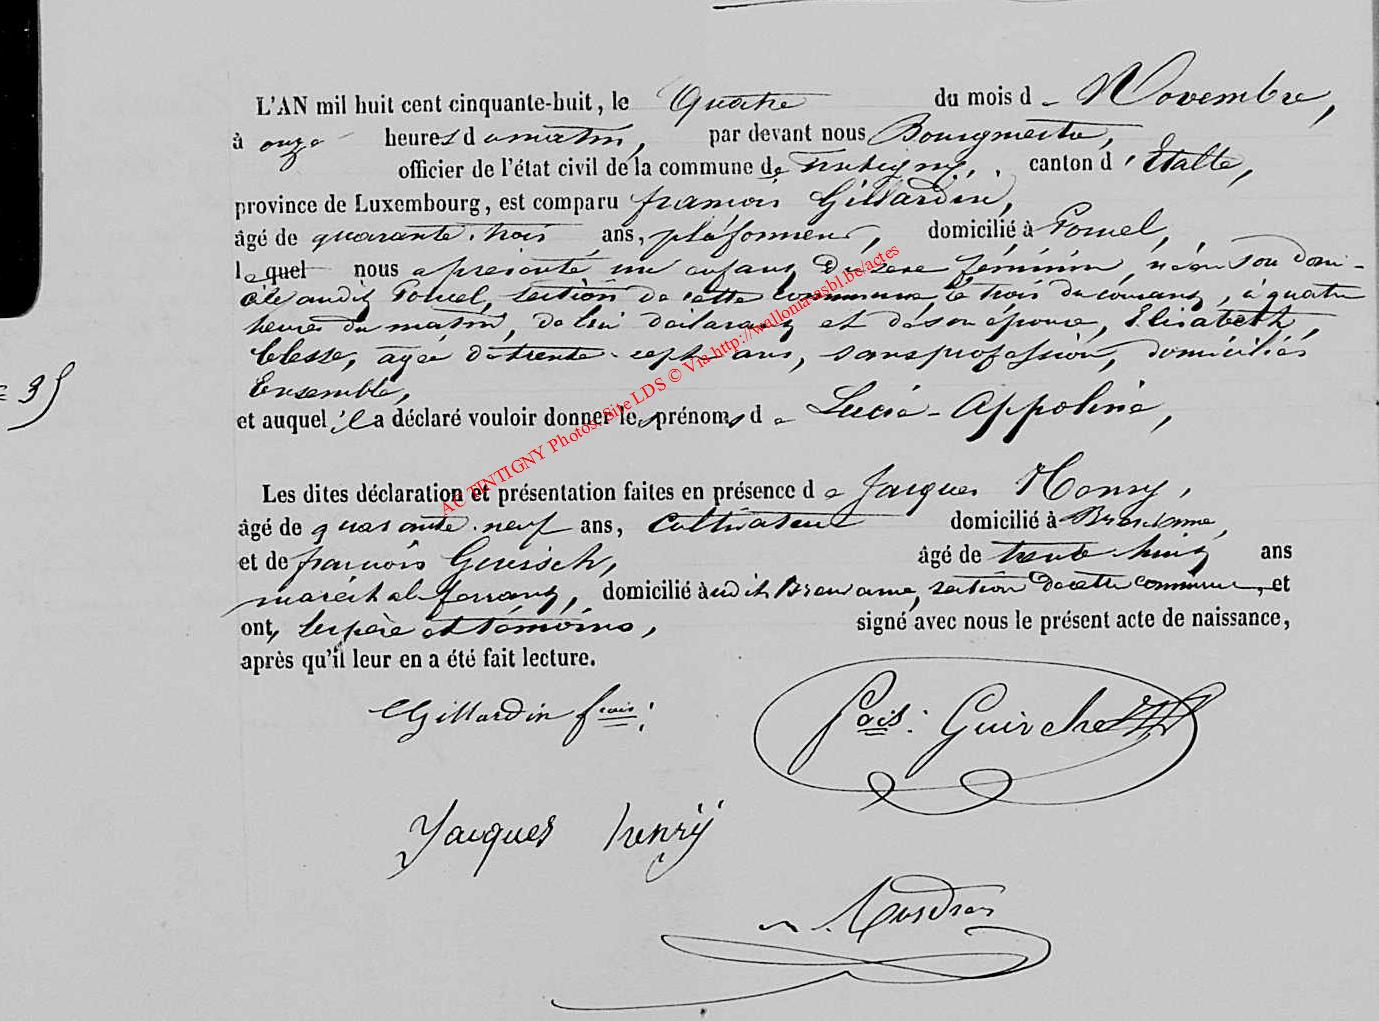 L'AN mil huit cent cinquante-huit, le Quatre du mois de Novembre,
à onze heures du matin, par devant nous Bourgmestre,
officier de l'état civil de la commune de Tintigny, canton d'Etalle,
province de Luxembourg, est comparu françois Gillardin,
âgé de quarante-trois ans, plafonneur, domicilié à Poncel,
lequel nous a présenté un enfant du sexe féminin, né en son domi-
cile audit Poncel, section de cette commune, le trois du courant, à quatre
heures du matin, de lui déclarant et de son épouse, Elisabeth,
Clesse, agée de trente-sept ans, sans profession, domiciliés
Ensemble,
et auquel il a déclaré vouloir donner les prénoms de Lucie-Appoline,
= 35
Les dites déclaration et présentation faites en présence de Jacques Henry,
âgé de quarante-neuf ans, cultivateur domicilié à
et de françois Guirsch, âgé de trente-huit ans
maréchal ferrant, domicilié audit section de cette commune, et
ont, les père et témoins, signé avec nous le présent acte de naissance,
après qu'il leur en a été fait lecture.
Gillardin fcois:
fcois: Guirche
Jacques henrÿ
AC TINTIGNY Photos, Site LDS © Via http://wallonia-asbl.be/actes